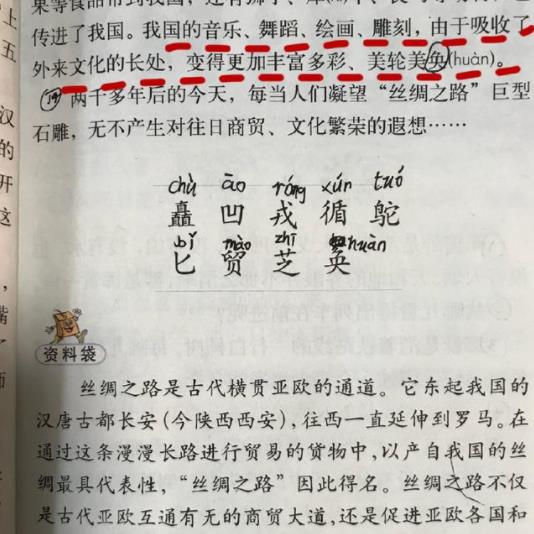 传进了我国。我国的音乐、舞蹈、绘画、雕刻，由于吸收了
外来文化的长处，变得更加丰富多彩、美轮美奂(huàn)。
两千多年后的今天，每当人们凝望“丝绸之路”巨型
石雕，无不产生对往日商贸、文化繁荣的遐想……
chù āo róng xún tuó
矗 凹 戎 循 鸵
bǐ mào zhī huàn
匕 贸 芝 奂
资料袋
丝绸之路是古代横贯亚欧的通道。它东起我国的
汉唐古都长安（今陕西西安），往西一直延伸到罗马。在
通过这条漫漫长路进行贸易的货物中，以产自我国的丝
绸最具代表性，“丝绸之路”因此得名。丝绸之路不仅
是古代亚欧互通有无的商贸大道，还是促进亚欧各国和